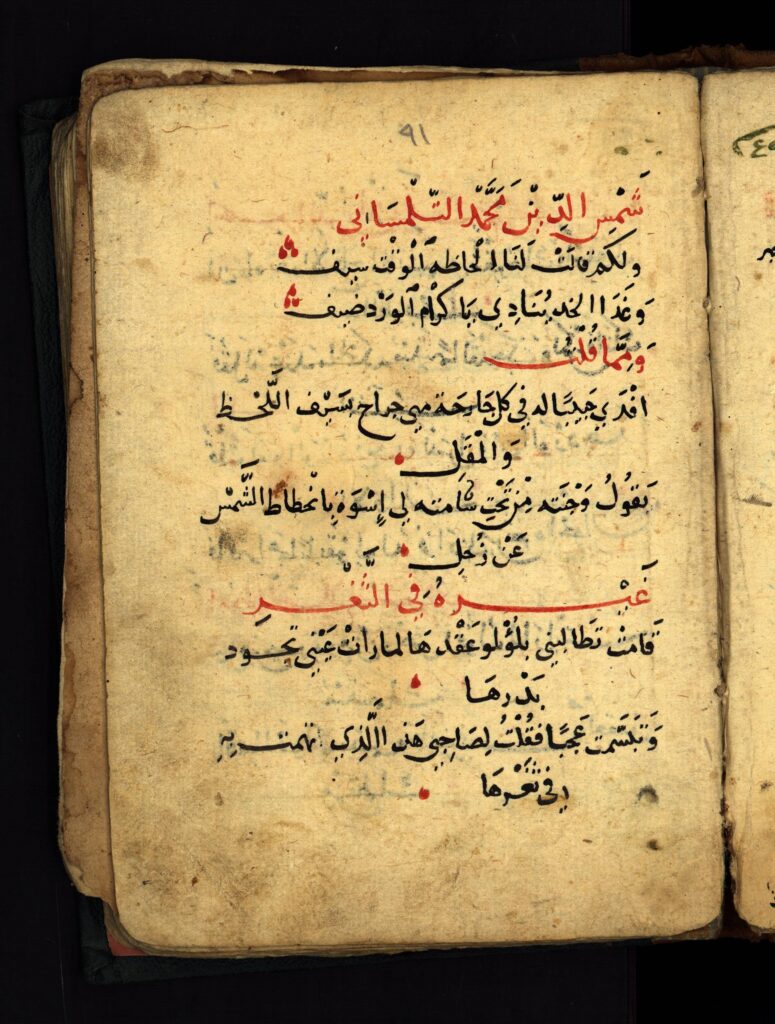 ٩١
شَمْس الدِّيْن مَحَمَّد التّلْمسَاني
ولكم قالتْ لَنَا الْحاظه الْوقْت سيف
وَغَدَا الخد يُنَادي يَا كرَام الوَرْد ضيف
وَمِمَّا قُلْت
افْدي حَبيبًا له في كل جَارحَة مني جراح بسَيْف اللَّحْظ
وَالْمقَل
يَقُولُ وَجْنَته مِنْ تَحْتِ شامته لي إِسْوَة بِانْحطاط الشَّمْس
عَنْ زُحَلِ
غَيْره في الثَّغْر
قَامتْ تطَالبني بلُؤْلو عَقْدهَا لما راتْ عَيْني تجود
بدُرهَا
وَتَبَسَّمت عَجبًا فقُلْتُ لصَاحِبي هَذا الَّذي اتهمت بِهِ
في ثَغْرهَا